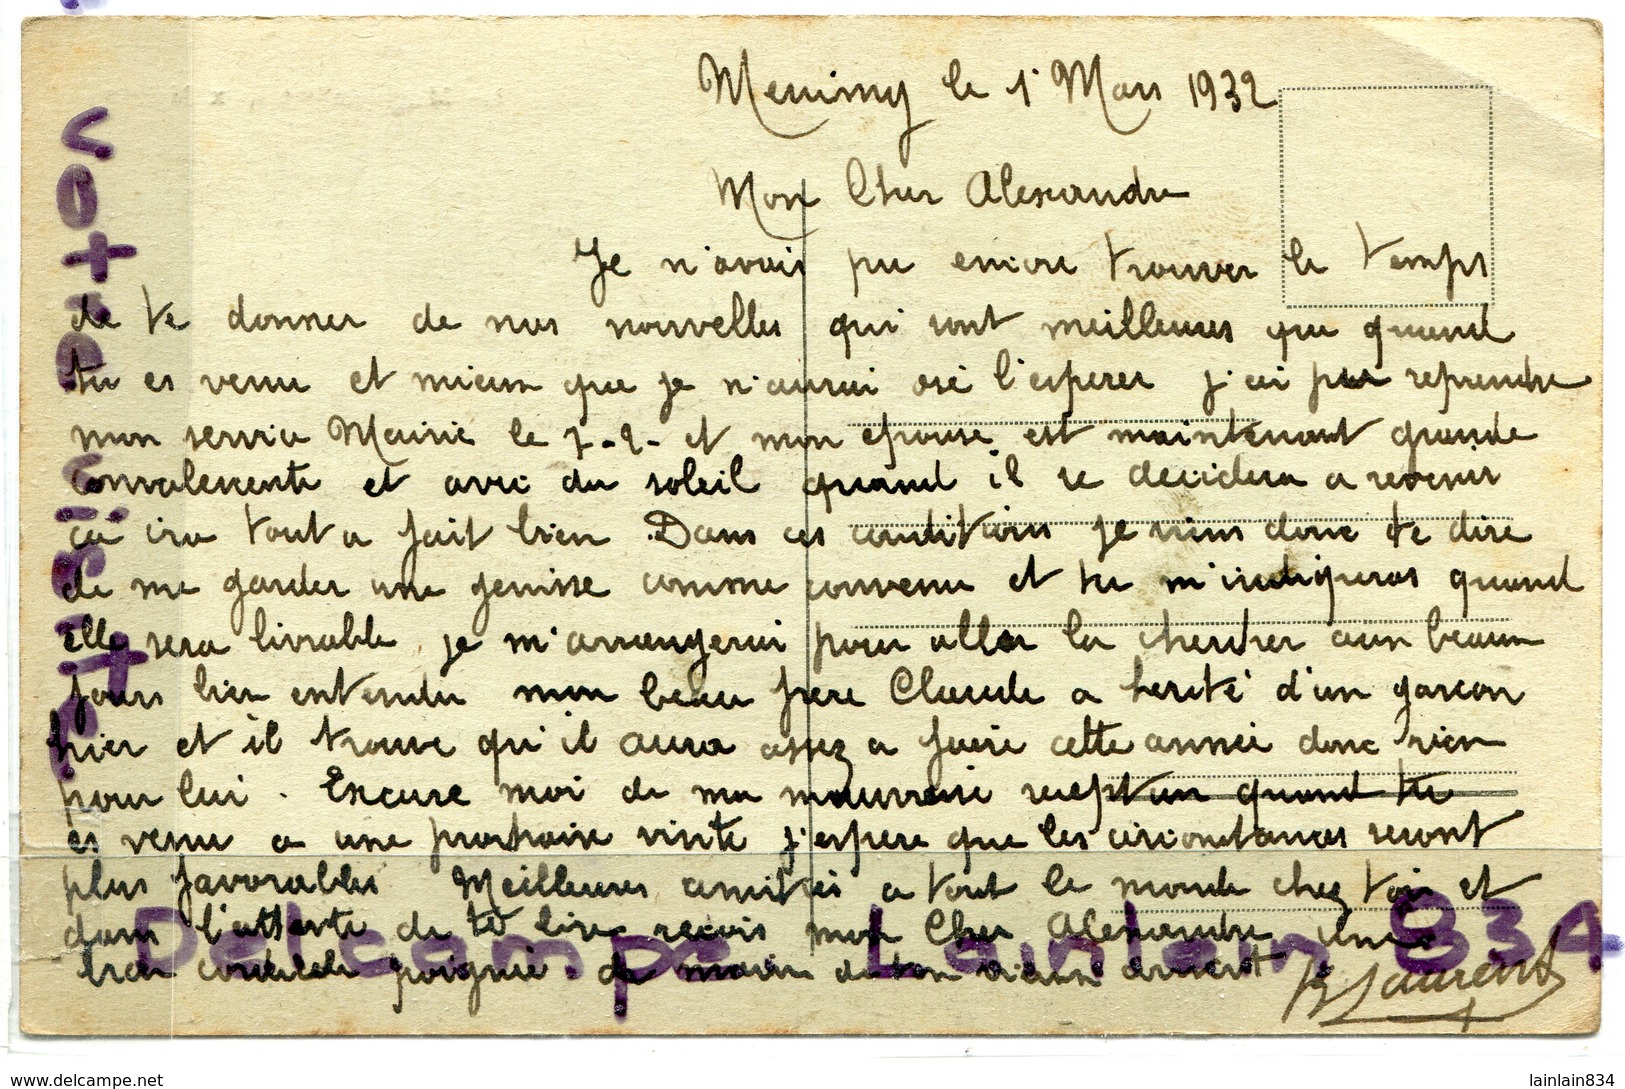 le 1 Mars 1932
Mon Cher Alexandre
Je n'avais pu encore trouver le temps
de te donner de nos nouvelles qui sont meilleures que quand
tu es venu et mieux que je n'aurai osé l'esperer j'ai pu reprendre
mon service Mairie le 7-2- et mon epouse est maintenant grande
convalescente et avec du soleil quand il se decidera a revenir
ça ira tout a fait bien. Dans ces conditions je viens donc te dire
de me garder une genisse comme convenu et tu m'indiqueras quand
elle sera livrable, je m'arrangerai pour aller la chercher aux beaux
jours bien entendu mon beau frere Claude a herité d'un garcon
hier et il trouve qu'il aura assez a faire cette année donc rien
pour lui. Excuse moi de ma mauvaise reception quand tu
es venu a une prochaine visite j'espere que les circonstances seront
plus favorables Meilleures amitiés a tout le monde chez toi et
dans l'attente de te lire recois mon Cher Alexandre une
bien cordiale poignée de main de ton vieux
Laurent
votre visite
Delcampe Lainlain 834
www.delcampe.net
lainlain834